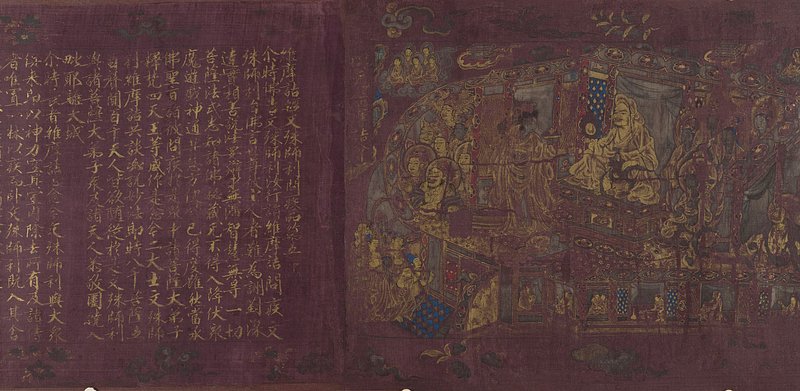 維摩詰經文殊師利問疾品第五
尒時佛告文殊師利汝行詣維摩詰問疾文
殊師利白佛言世尊彼上人者難為詶對深
達實相善說法要辯才無滯智慧無导一切
菩薩法式悉知諸佛祕藏无不得入降伏眾
魔遊戲神通其慧方便皆已得度雖然當承
佛聖旨詣彼問疾於是眾中諸菩薩大弟子
釋梵四天王等咸作是念今二大士文殊師
利維摩詰共談必說妙法即時八千菩薩五
百聲聞百千天人皆欲隨從於是文殊師利
與諸菩薩大弟子眾及諸天人恭敬圍遶入
毗耶離大城
尒時長者維摩詰心念今文殊師利與大眾
俱來即以神力空其室內除去所有及諸侍
者唯置一床以疾而臥文殊師利既入其舍